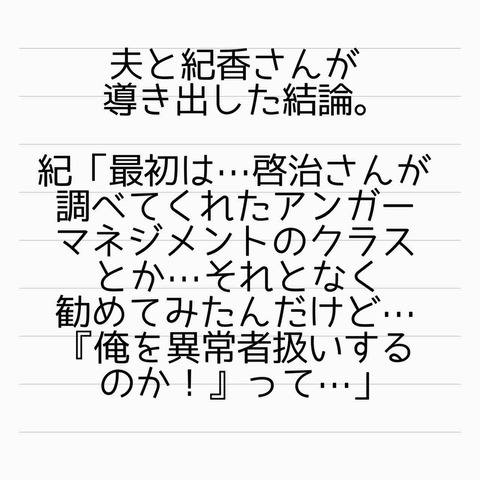 夫と紀香さんが
導き出した結論。
紀「最初は…啓治さんが
調べてくれたアンガー
マネジメントのクラス
とか…それとなく
勧めてみたんだけど…
『俺を異常者扱いする
のか！』って…」